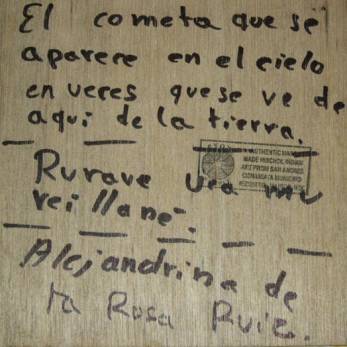 El cometa que se
aparece en el cielo
en veces que se ve de
aquí de la tierra.
Rurave
reillane.
AUTHENTIC
MADE HUICHOL INDIAN
ART FROM SAN ANDRES
Alejandrina de
la Rosa Ruiz.